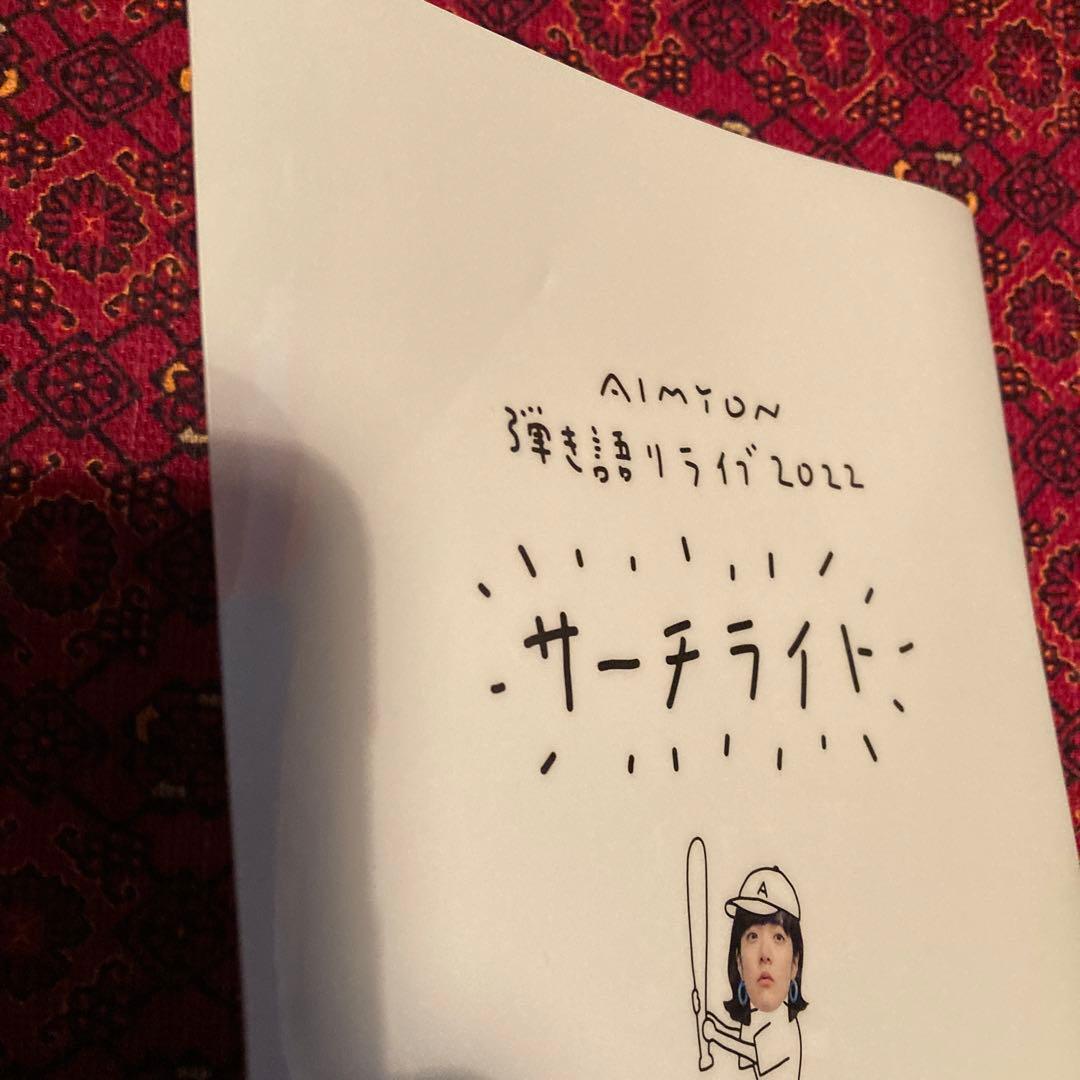 AIMYON
弾き語りライブ2022
サーチライト
A